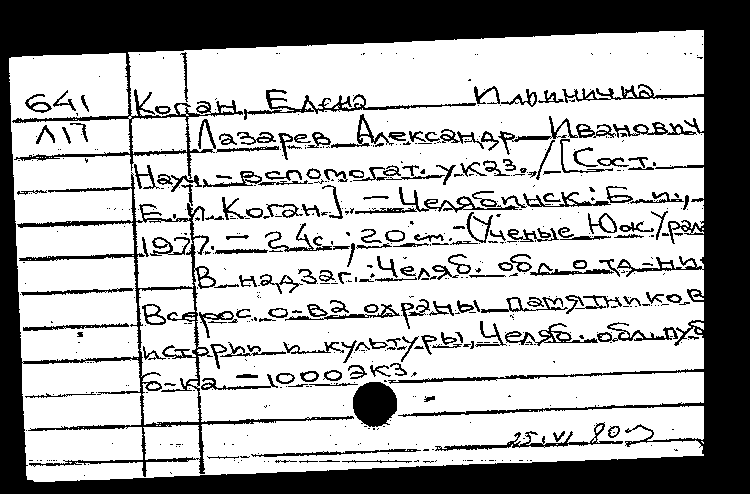 641 Коган, Елена Ильинична
Л17 Лазарев Александр Иванович
Науч.-вспомогат. указ. / [Сост.
Е. И Коган.] – Челябинск: Б.и.,
1977. – 24с.; 20 см. – (Ученые Юж. Урала
В надзаг.: Челяб. обл. отд-ни
Всерос. о-ва охраны памятников
истории и культуры, Челяб. обл. пуб
б-ка. – 1000экз.
25.VI 80